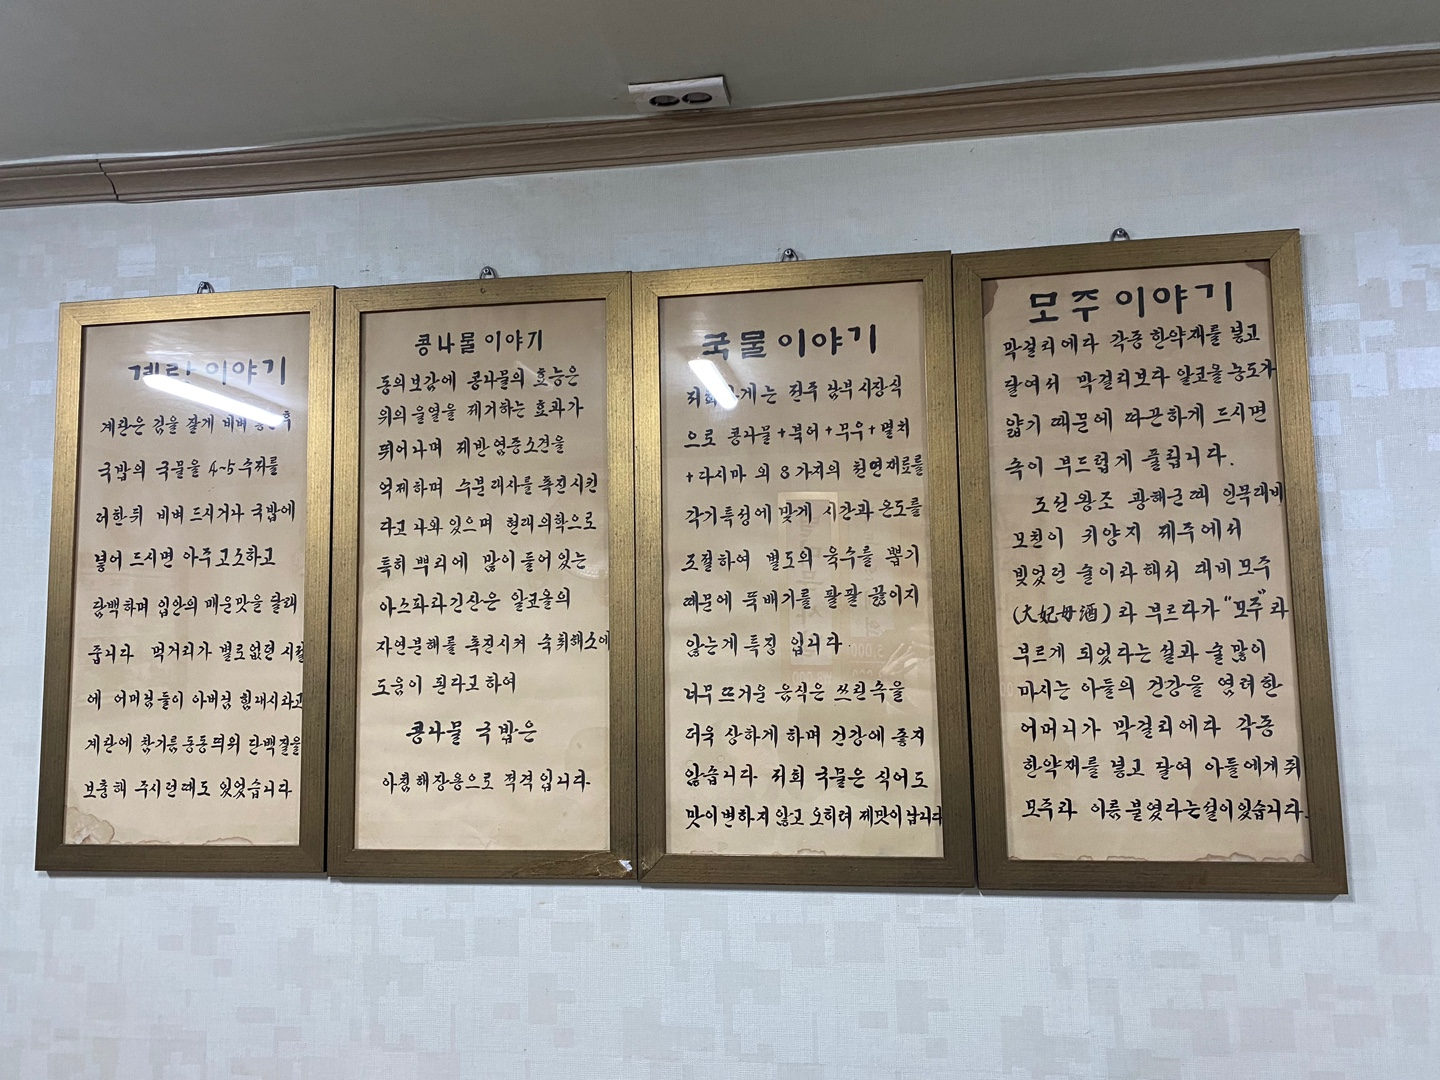 계란 이야기
계란은 김을 잘게 비벼 넣은 후
국밥의 국물을 4~5 수저를
러한뒤 비벼 드시거나 국밥에
넣어 드시면 아주 고소하고
담백하며 입안의 매운맛을 달래
줍니다 먹거리가 별로없던 시절
에 어머님들이 아버님 힘내시라고
계란에 참기름 동동띄워 단백질을
보충해 주시던때도 있었습니다
콩나물 이야기
동의보감에 콩나물의 효능은
위의 울열을 제거하는 효과가
뛰어나며 제반 염증소견을
억제하며 수분대사를 촉진시킨
다고 나와 있으며 현대의학으로
특히 뿌리에 많이 들어 있는
아스파라긴산은 알코올의
자연분해를 촉진시켜 숙취해소에
도움이 된다고 하여
콩나물 국밥은
아침해장용으로 적격 입니다
국물 이야기
저희 가게는 전주 남부시장식
으로 콩나물+북어+무우+멸치
+다시마 외 8가지의 천연재료를
각기특성에 맞게 시간과 온도를
조절하여 별도의 육수를 뽑기
때문에 뚝배기를 팔팔 끓이지
않는게 특징 입니다.
너무 뜨거운 음식은 쓰린속을
더욱 상하게 하며 건강에 좋지
않습니다 저희 국물은 식어도
맛이변하지 않고 오히려 제맛이납니다
모주 이야기
막걸리에다 각종 한약재를 넣고
달여서 막걸리보다 알코올 농도가
얇기 때문에 따끈하게 드시면
속이 부드럽게 풀립니다.
조선 왕조 광해군때 인목대비
모친이 귀양지 제주에서
빚었던 술이라 해서 대비모주
(大妃母酒)라 부르다가 "모주"라
부르게 되었다는 설과 술 많이
마시는 아들의 건강을 염려한
어머니가 막걸리에다 각종
한약재를 넣고 달여 아들에게 줘
모주라 이름 붙였다는설이있습니다.